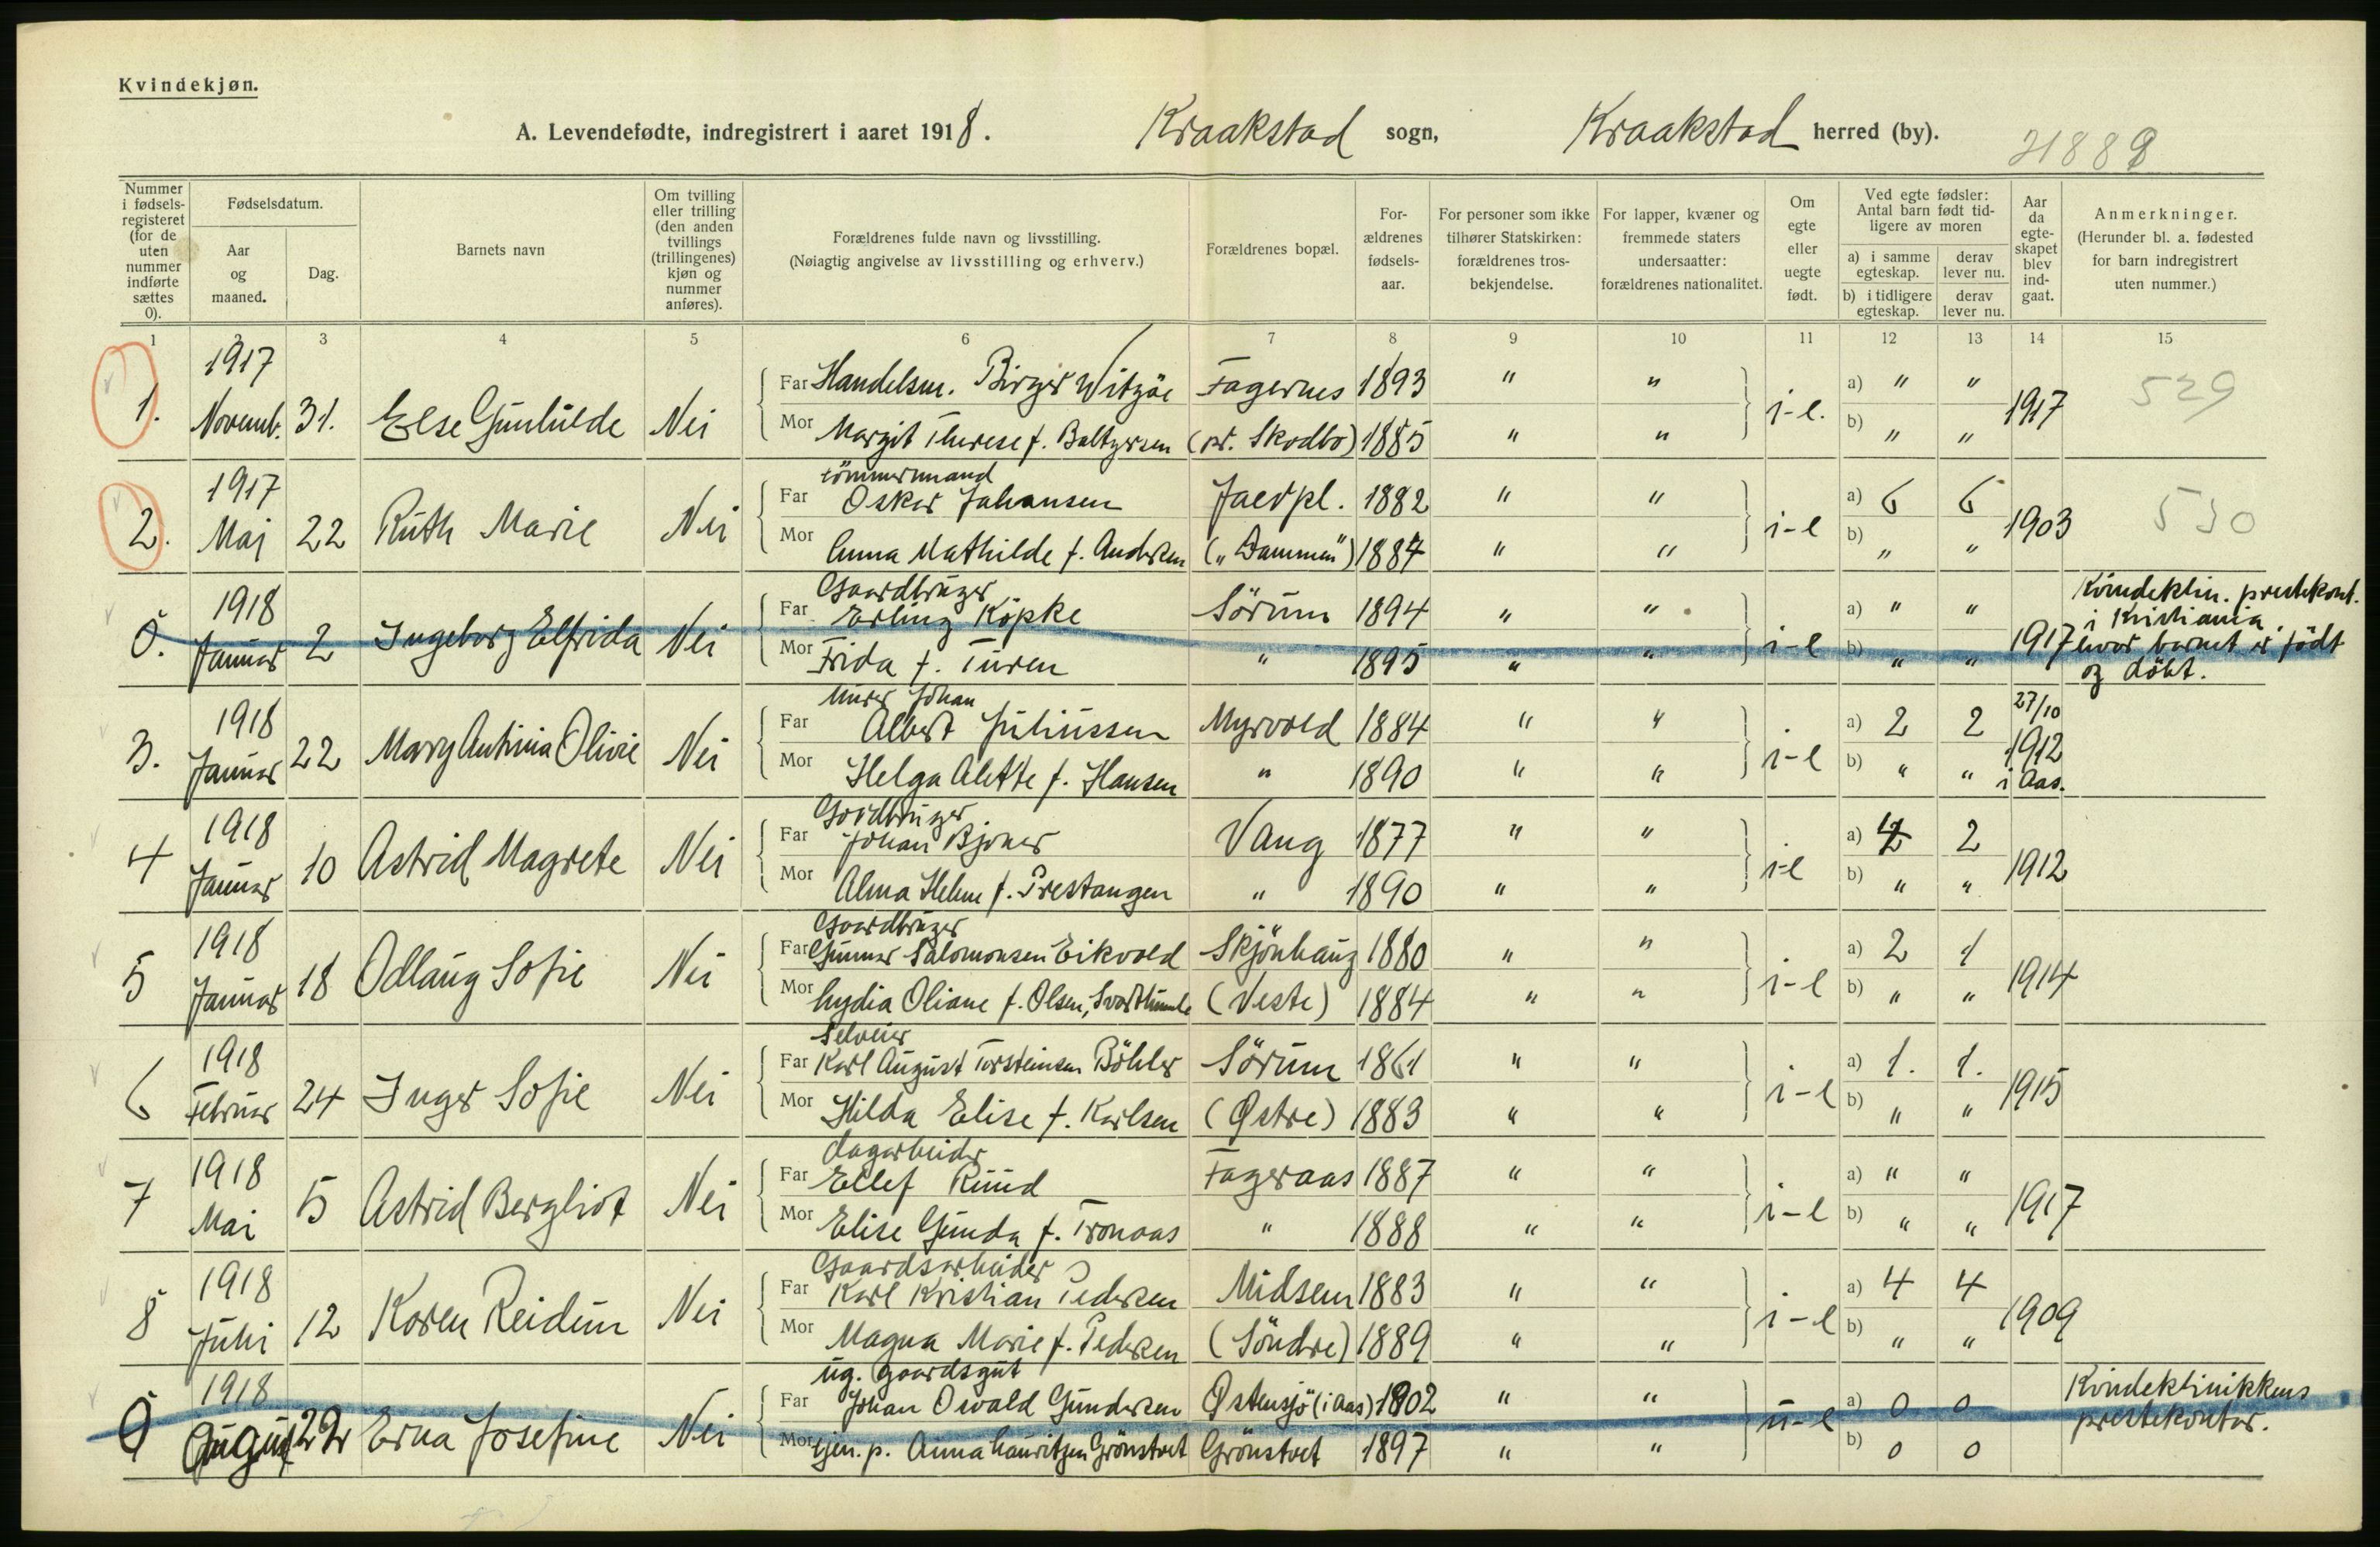 Kvindekjøn.
A. Levendefødte, indregistrert i aaret 1918. Kraakstad sogn, Kraakstad herred (by).
Nummer i fødsels-registeret (for de uten nummer indførte sættes 0).
Fødselsdatum.
Aar og maaned.
Dag.
Barnets navn
Om tvilling eller trilling (den anden tvillings (trillingenes) kjøn og nummer anføres).
Forældrenes fulde navn og livsstilling.
(Nøiagtig angivelse av livsstilling og erhverv.)
Forældrenes bopæl.
For-ældrenes fødsels-aar.
For personer som ikke tilhører Statskirken: forældrenes tros-bekjendelse.
For lapper, kvæner og fremmede staters undersaatter: forældrenes nationalitet.
Om egte eller uegte født.
Ved egte fødsler: Antal barn født tid-ligere av moren
a) i samme egteskap. derav lever nu.
b) i tidligere egteskap. derav lever nu.
Aar da egte-skapet blev ind-gaat.
Anmerkninger.
(Herunder bl. a. fødested for barn indregistrert uten nummer.)
1 2 3 4 5 6 7 8 9 10 11 12 13 14 15
1. 1917 Novemb. 31. Else Gunhilde Nei
Far Handelsm. Birger Witzöe Fagernes 1893 " " i-e. a) " " 1917 529
Mor Margit Therese f. Baltzersen (pr. Skodbo) 1885 " " b) " "
2. 1917 Mai 22 Ruth Marie Nei
tömmermand
Far Oskar Johansen Jaerpl. 1882 " " i-e a) 6 6 1903 530
Mor Anna Mathilde f. Andersen („Dammen") 1884 " " b) " "
0. 1918 Januar 2 Ingeborg Elfrida Nei
Gaardbruger
Far Erling Köpke Sörum 1894 " " i-e a) " " 1917
Mor Frida f. Turen " 1895 " " b) " "
Kvindeklin. prestekont. i Kristiania hvor barnet er födt og döbt.
3. 1918 Januar 22 Mary Antinia Olivie Nei
Murer Johan
Far Albert Juliussen Myrvold 1884 " " i-e a) 2 2 27/10 1912 i Aas.
Mor Helga Alette f. Hansen " 1890 " " b) " "
4 1918 Januar 10 Astrid Magrete Nei
Gardbruger
Far Johan Bjoner Vang 1877 " " i-e a) 2 2 1912
Mor Alma Helene f. Prestangen " 1890 " " b) " "
5 1918 Januar 18 Odlaug Sofie Nei
Gaardbruger
Far Gunnar Salomonsen Eikvold Skjönhaug 1880 " " i-e a) 2 1 1914
Mor Lydia Oliane f. Olsen, (Veste) 1884 " " b) " "
6 1918 Februar 24 Inger Sofie Nei
Selveier
Far Karl August Torsteinsen Böhler Sörum 1861 " " i-e a) 1. 1. 1915
Mor Hilda Elise f. Karlsen (Østre) 1883 " " b) " "
7 1918 Mai 5 Astrid Bergliot Nei
dagarbeider
Far Ellef Ruud Fageraas 1887 " " i-e a) " " 1917
Mor Elise Gunda f. Tronaas " 1888 " " b) " "
8 1918 Juli 12 Karen Reidun Nei
Gaardsarbeider
Far Karl Kristian Pedersen Midsem 1883 " " i-e a) 4 4 1909
Mor Magna Marie f. Pedersen (Söndre) 1889 " " b) " "
0 1918 August 22 Erna Josefine Nei
ug. gaardsgut
Far Johan Osvald Gundersen Østensjö (i Aas) 1902 " " u-e a) 0 0
Mor tjen. p. Anna Lauritzen Grönstvet Grönstvet 1897 " " b) 0 0
Kvindeklinikkens prestekontor.